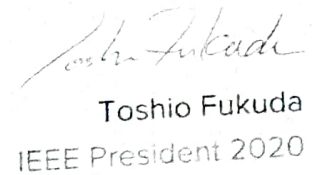 Toshio Fukuda
Toshio Fukuda
IEEE President 2020